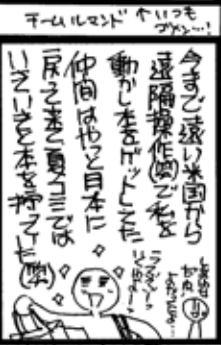 チームルマンド ↑いつもゴメン…!
今まで遠い米国から
遠隔操作(笑)で私を
動かし本をゲットしてた
仲間はやっと日本に
戻って来て夏コミでは
いそいそと本を狩っていた(笑)